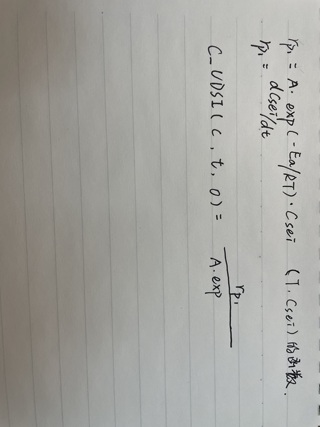 rp₁ = A. exp(-Ea/RT)·Csei (T. Csei) 的函数.
rp₁ = dCsei/dt
C_UDSI(c, t, 0) = rp₁ / A.exp